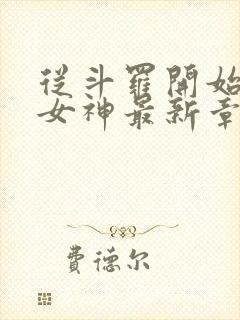 從斗羅開始
女神最新章
費德尔